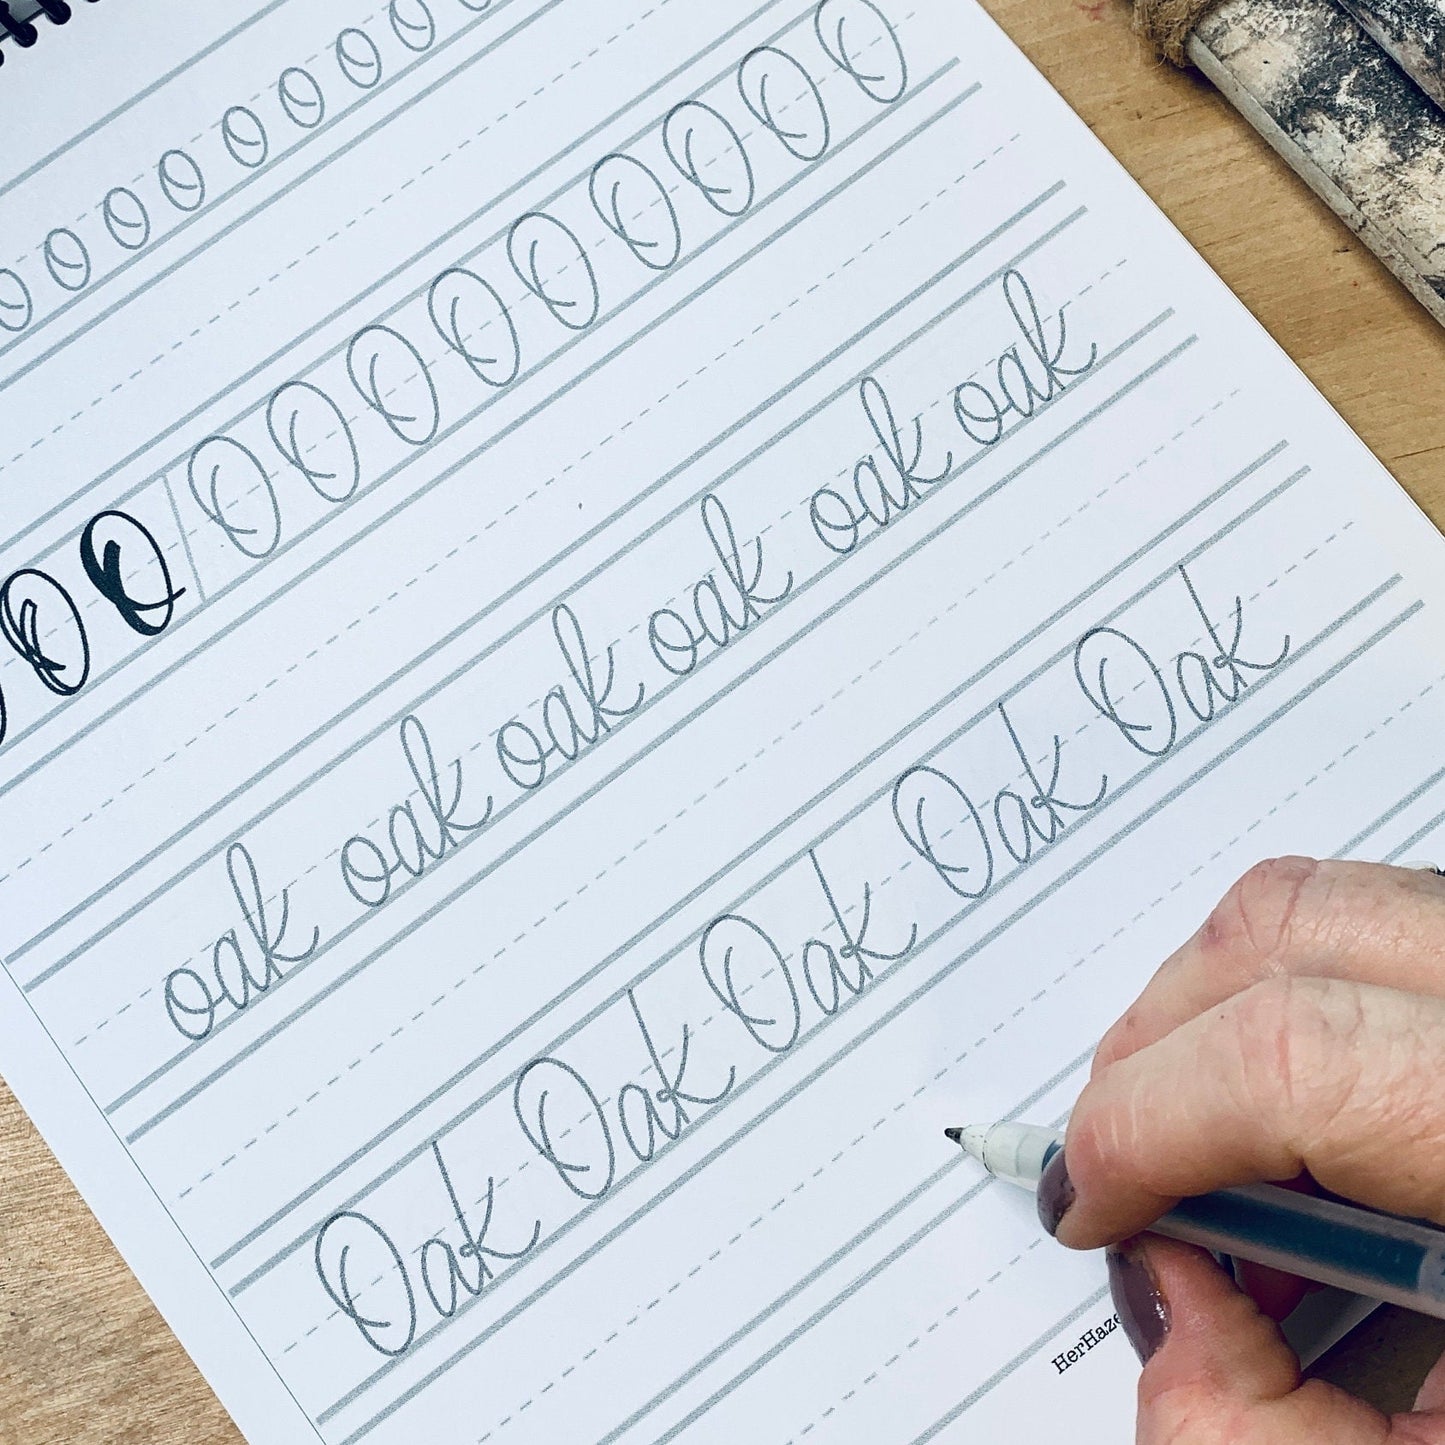 o o o o o o o o o
O O O O O O O O O O O
oak oak oak oak oak oak
Oak Oak Oak Oak Oak